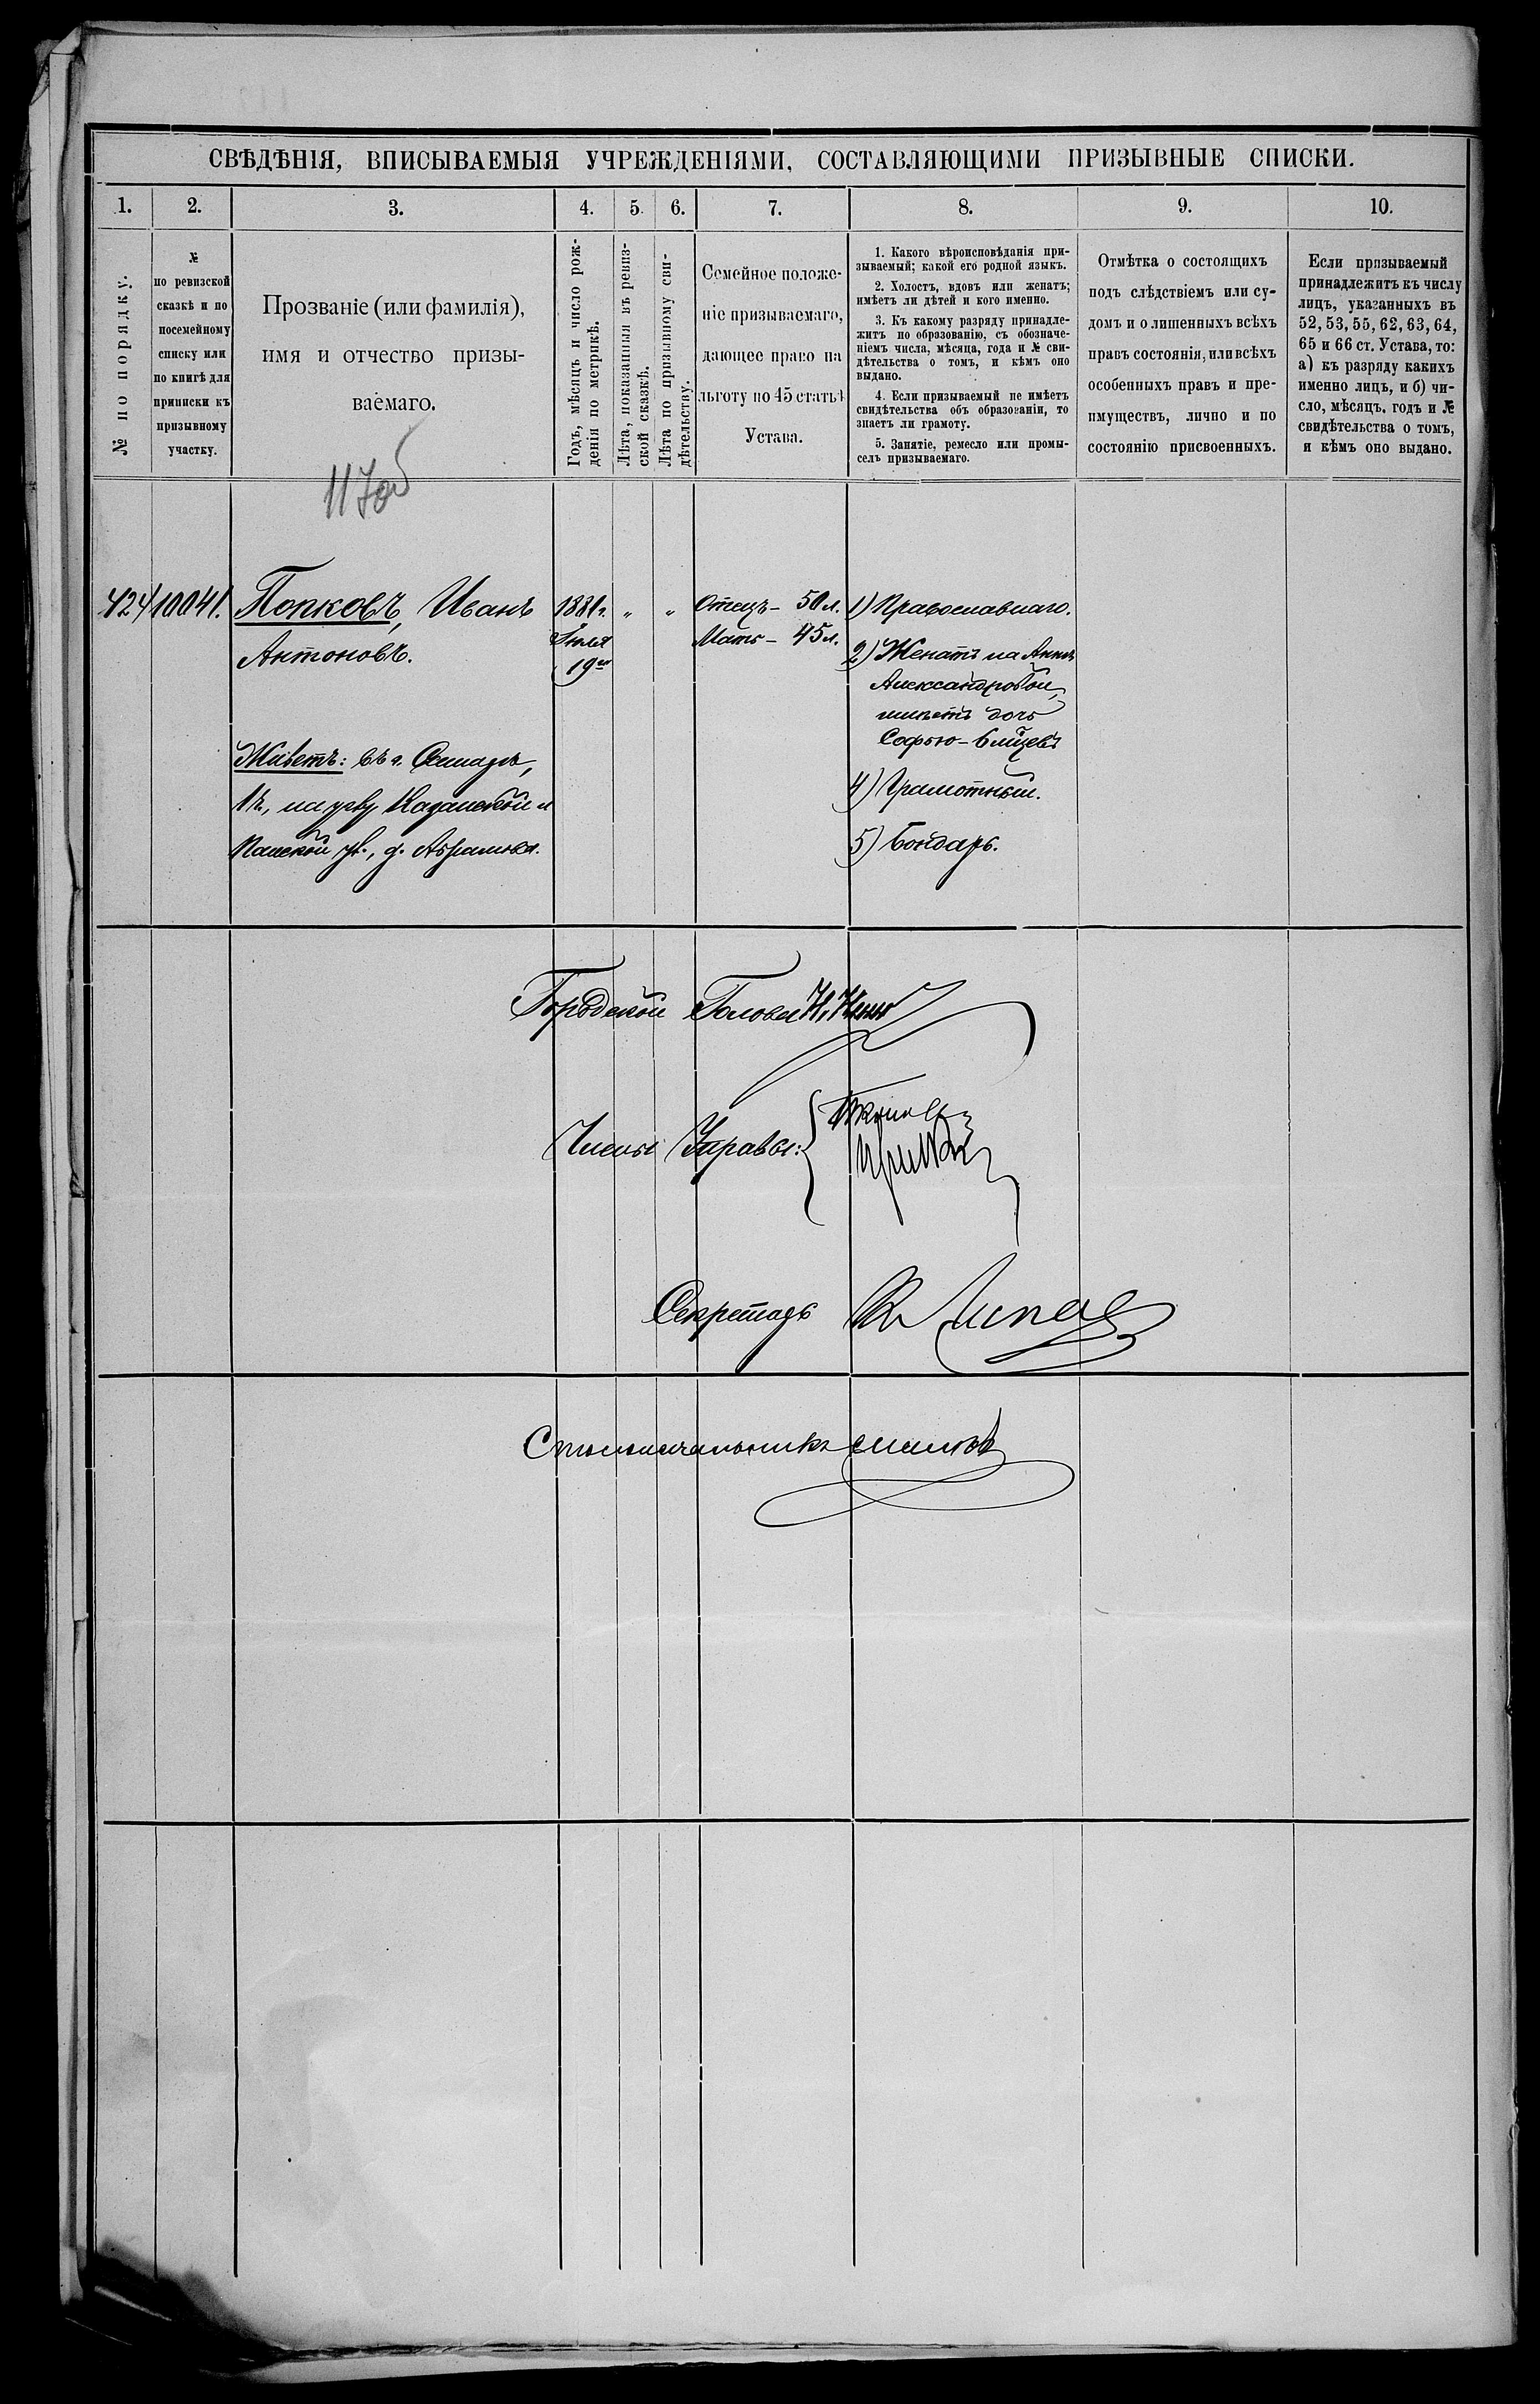 СВѢДѢНІЯ, ВПИСЫВАЕМЫЯ УЧРЕЖДЕНІЯМИ, СОСТАВЛЯЮЩИМИ ПРИЗЫВНЫЕ СПИСКИ.
1. 2. 3. 4. 5. 6. 7. 8. 9. 10.
№ по порядку.
№
по ревизской
сказкѣ и по
посемейному
списку или
по книгѣ для
приписки къ
призывному
участку.
Прозваніе (или фамилія),
имя и отчество призы-
ваемаго.
Годъ, мѣсяцъ и число рож-
денія по метрикѣ.
Лѣта, показанныя въ ревиз-
ской сказкѣ.
Лѣта по призывному сви-
дѣтельству.
Семейное положе-
ніе призываемаго,
дающее право на
льготу по 45 статьѣ
Устава.
1. Какого вѣроисповѣданія при-
зываемый; какой его родной языкъ.
2. Холостъ, вдовъ или женатъ;
имѣетъ ли дѣтей и кого именно.
3. Къ какому разряду принадле-
житъ по образованію, съ обозначе-
ніемъ числа, мѣсяца, года и № сви-
дѣтельства о томъ, и кѣмъ оно
выдано.
4. Если призываемый не имѣетъ
свидѣтельства объ образованіи, то
знаетъ ли грамоту.
5. Занятіе, ремесло или промы-
селъ призываемаго.
Отмѣтка о состоящихъ
подъ слѣдствіемъ или су-
домъ и о лишенныхъ всѣхъ
правъ состоянія, или всѣхъ
особенныхъ правъ и пре-
имуществъ, лично и по
состоянію присвоенныхъ.
Если призываемый
принадлежитъ къ числу
лицъ, указанныхъ въ
52, 53, 55, 62, 63, 64,
65 и 66 ст. Устава, то:
а) къ разряду какихъ
именно лицъ, и б) чи-
сло, мѣсяцъ, годъ и №
свидѣтельства о томъ,
и кѣмъ оно выдано.
117об
424
10041.
Попковъ, Иванъ
Антоновъ.
Живетъ: въ г. Самарѣ,
1 ч., на углу Казанской и
Панской ул., д. Абрамова.
1881 г.
Іюля
19го
"
"
Отецъ – 50 л.
Мать – 45 л.
1) Православнаго.
2) Женатъ на Аннѣ
Александровой,
имѣетъ дочь
Софью – 6 мѣсец
4) Грамотный.
5) Бондарь.
Городской Голова
Члены Управы:
Секретарь
Столоначальникъ